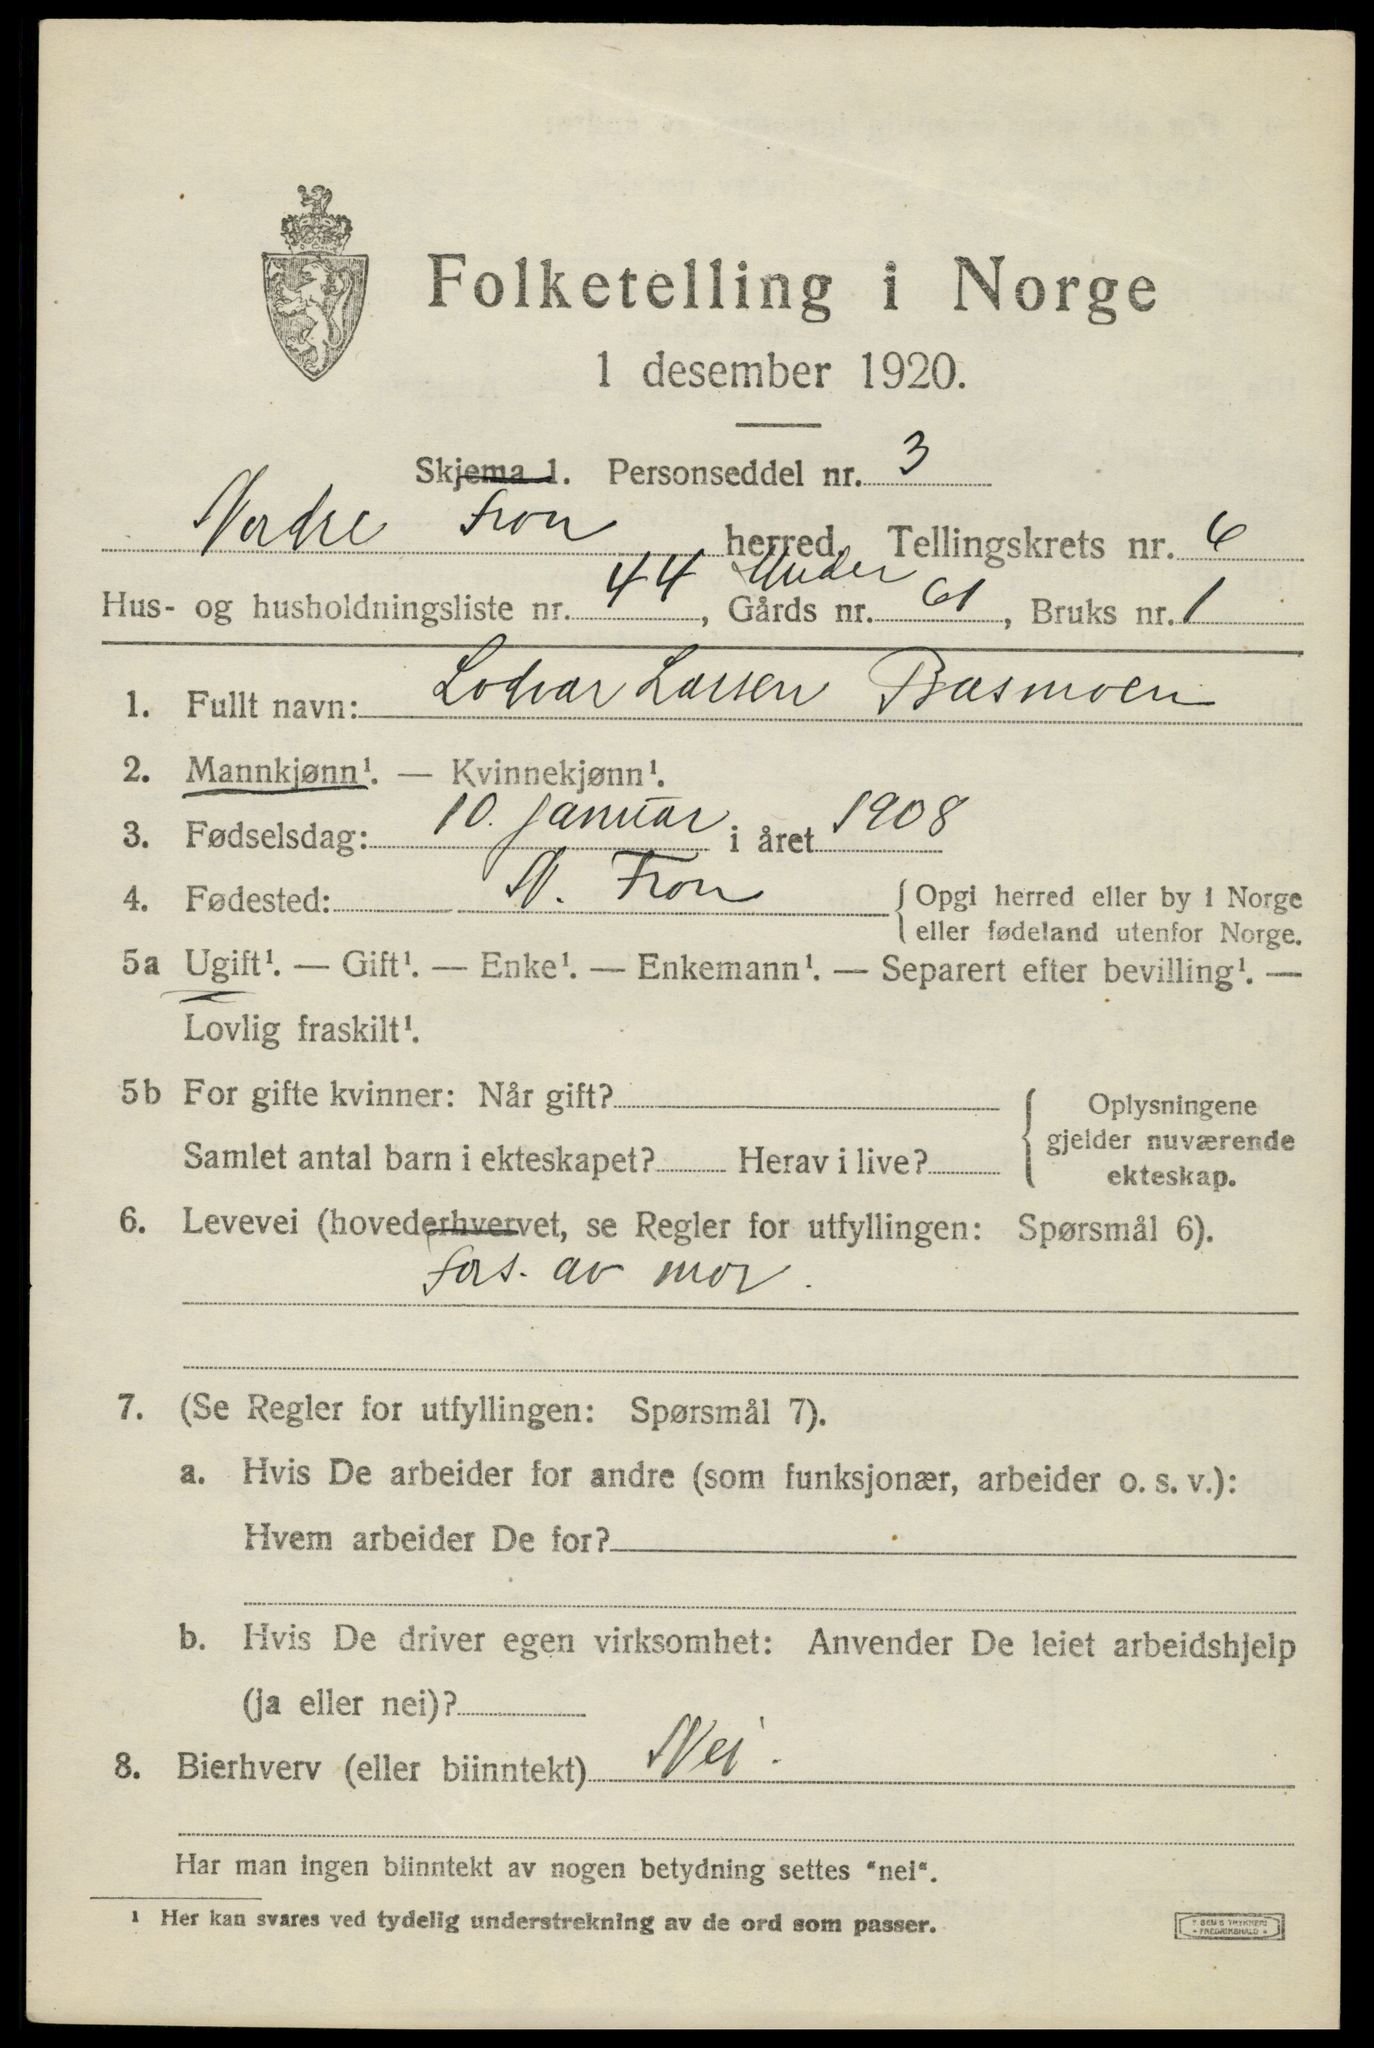 Folketelling i Norge
1 desember 1920.
Skjema 1. Personseddel nr. 3
Nordre Fron herred. Tellingskrets nr. 6
Under
Hus- og husholdningsliste nr. 44, Gårds nr. 61, Bruks nr. 1
1. Fullt navn: Lodvar Larsen Basmoen
2. Mannkjønn¹. — Kvinnekjønn¹.
3. Fødselsdag: 10. januar i året 1908
4. Fødested: N. Fron { Opgi herred eller by i Norge
eller fødeland utenfor Norge.
5a Ugift¹. — Gift¹. — Enke¹. — Enkemann¹. — Separert efter bevilling¹. —
Lovlig fraskilt¹.
5b For gifte kvinner: Når gift?
Samlet antal barn i ekteskapet? Herav i live?
{ Oplysningene
gjelder nuværende
ekteskap.
6. Levevei (hovederhvervet, se Regler for utfyllingen: Spørsmål 6).
Fors. av mor.
7. (Se Regler for utfyllingen: Spørsmål 7).
a. Hvis De arbeider for andre (som funksjonær, arbeider o. s. v.):
Hvem arbeider De for?
b. Hvis De driver egen virksomhet: Anvender De leiet arbeidshjelp
(ja eller nei)?
8. Bierhverv (eller biinntekt) Nei.
Har man ingen biinntekt av nogen betydning settes "nei".
¹ Her kan svares ved tydelig understrekning av de ord som passer.
E. SEM'S TRYKKERI
• FREDRIKSHALD •